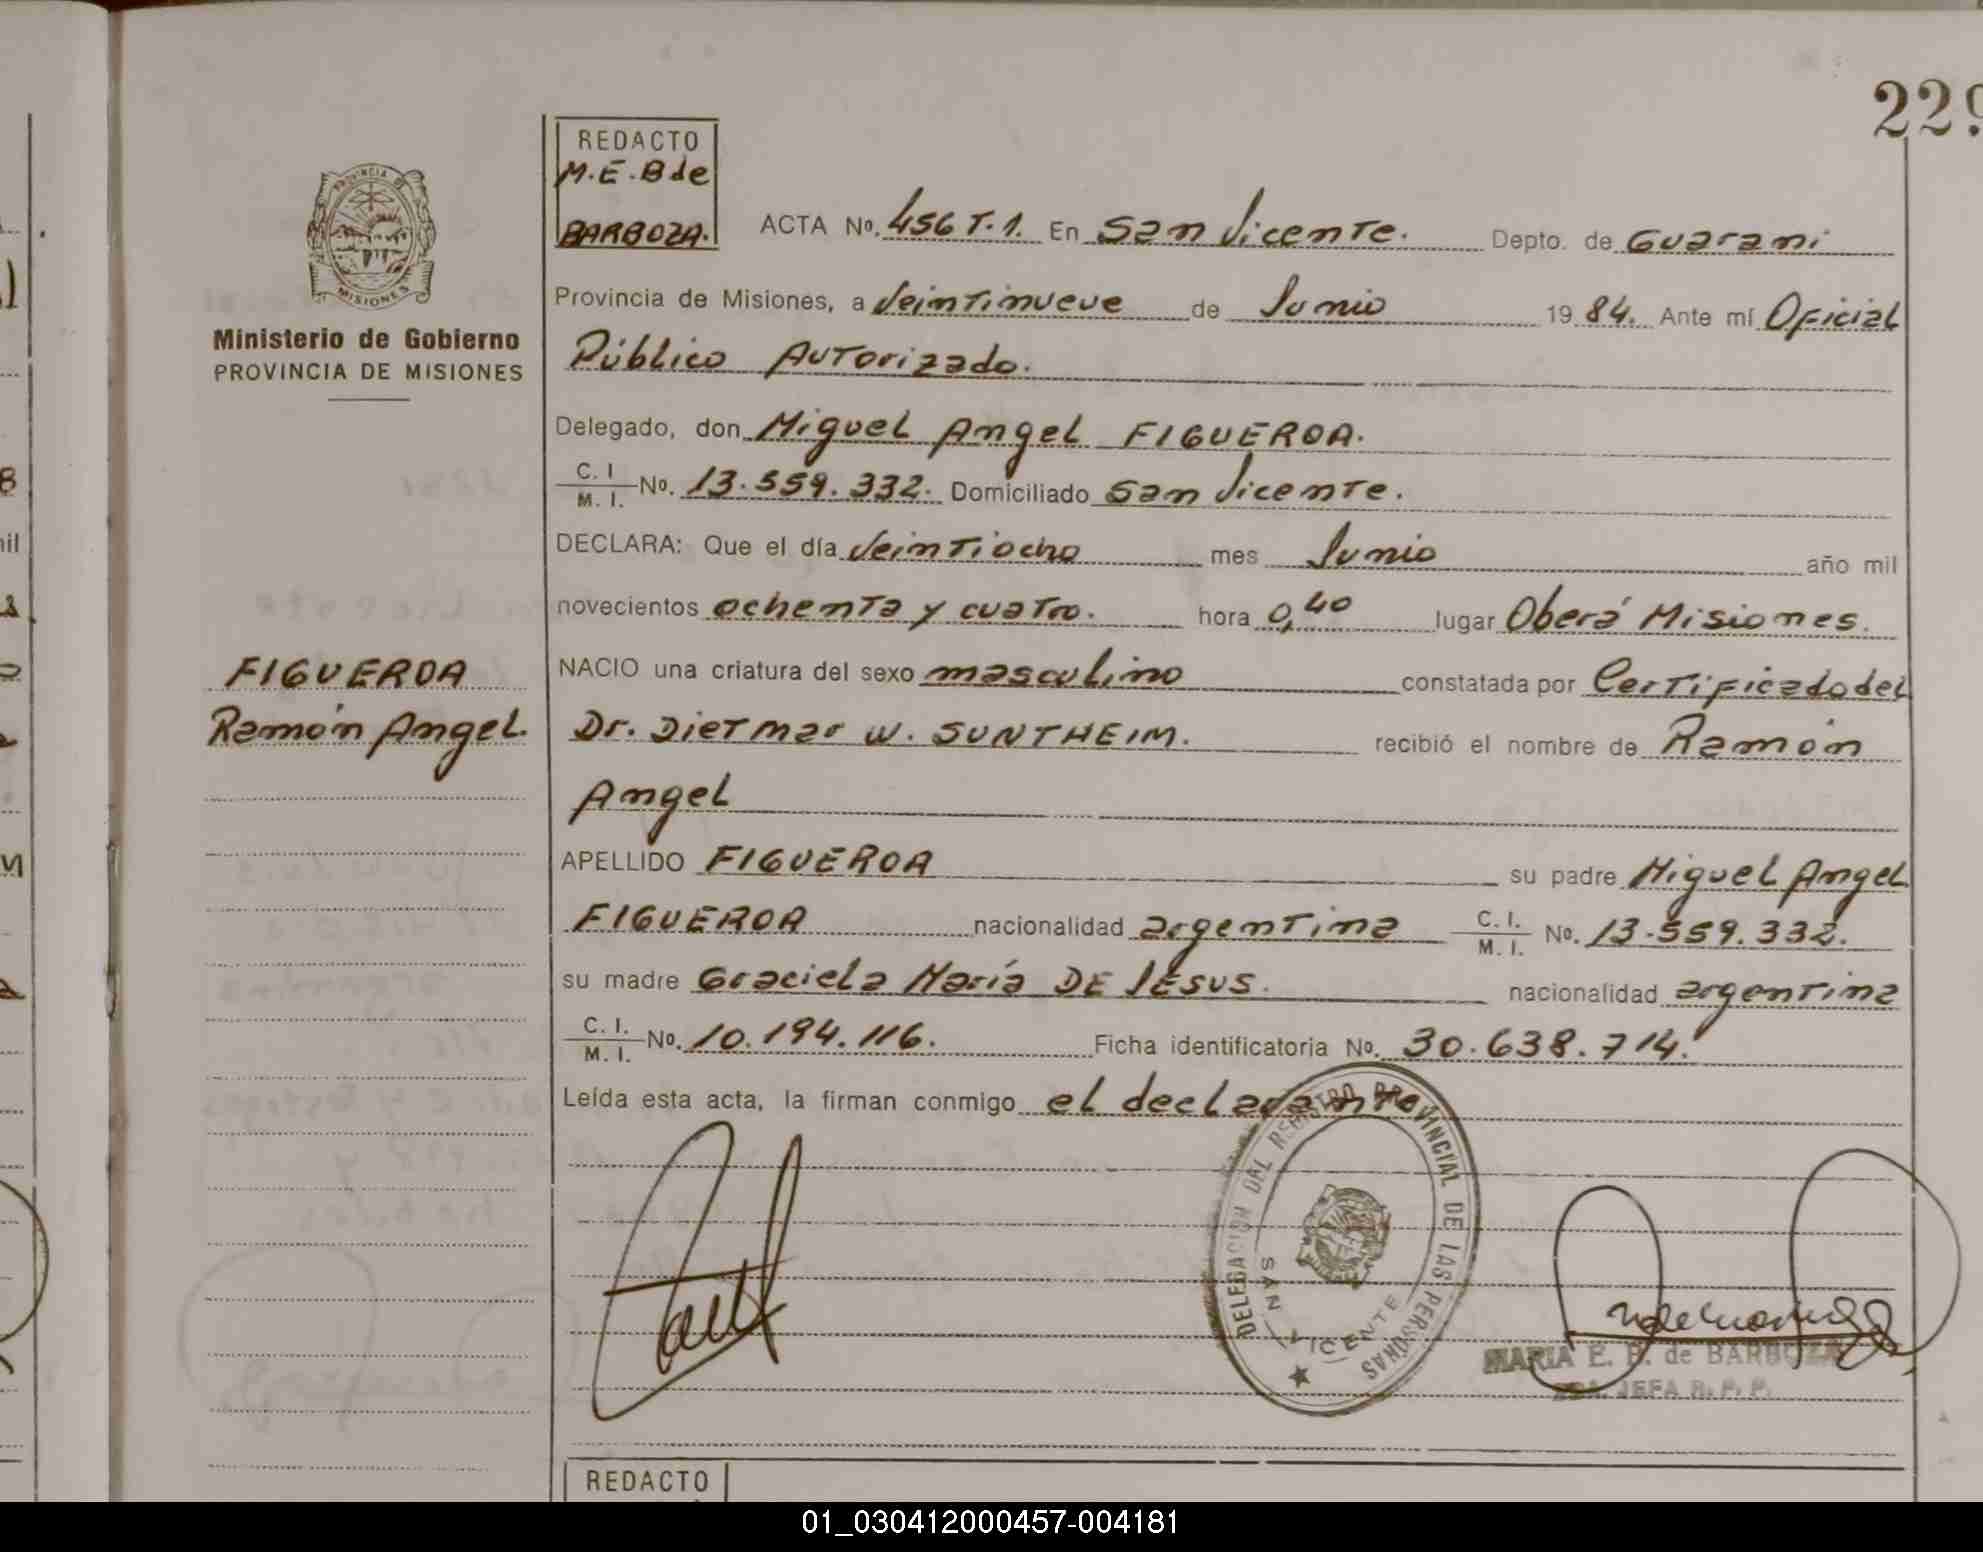 229
REDACTO
M.E.B de
BARBOZA.
PROVINCIA DE
MISIONES
Ministerio de Gobierno
PROVINCIA DE MISIONES
ACTA Nº. 456 T.1. En San Vicente. Depto. de Guarani
Provincia de Misiones, a Veintinueve de Junio 1984. Ante mí Oficial
Público Autorizado.
Delegado, don Miguel Angel FIGUEROA.
C. I. / M. I. Nº. 13.559.332. Domiciliado San Vicente.
DECLARA: Que el día Veintiocho mes Junio año mil
novecientos ochenta y cuatro. hora 0,40 lugar Oberá Misiones.
NACIO una criatura del sexo masculino constatada por Certificado del
FIGUEROA
Ramón Angel.
Dr. Dietmar W. SUNTHEIM. recibió el nombre de Ramón
Angel
APELLIDO FIGUEROA su padre Miguel Angel
FIGUEROA nacionalidad argentina C. I. / M. I. Nº. 13.559.332.
su madre Graciela María DE JESUS. nacionalidad argentina
C. I. / M. I. Nº. 10.194.116. Ficha identificatoria Nº. 30.638.714.
Leída esta acta, la firman conmigo el declarante
DELEGACION DAL REGISTRO PROVINCIAL DE LAS PERSONAS
SAN VICENTE
MARIA E. B. de BARBOZA
JEFA R. P. P.
REDACTO
01_030412000457-004181